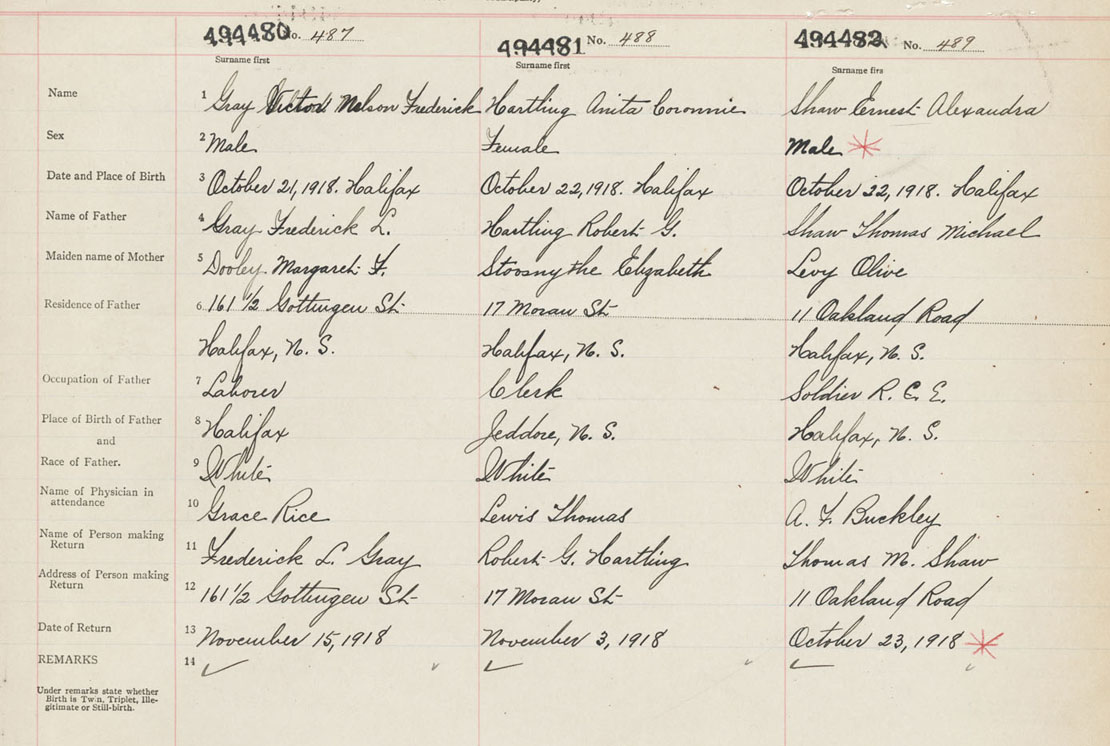 494480 No. 487
Surname first
494481 No. 488
Surname first
494482 No. 489
Surname firs
Name
1 Gray Victor Nelson Frederick
Hartling Anita Coronnie
Shaw Ernest Alexandra
Sex
2 Male
Female
Male
Date and Place of Birth
3 October 21, 1918. Halifax
October 22, 1918. Halifax
October 22, 1918. Halifax
Name of Father
4 Gray Frederick L.
Hartling Robert G.
Shaw Thomas Michael
Maiden name of Mother
5 Dooley Margaret F.
Elizabeth
Levy Olive
Residence of Father
6. 161 1/2 Gottingen St
17 Moran St
11 Oakland Road
Halifax, N. S.
Halifax, N. S.
Halifax, N. S.
Occupation of Father
7 Laborer
Clerk
Soldier R. C. E.
Place of Birth of Father
and
8 Halifax
Jeddore, N. S.
Halifax, N. S.
Race of Father.
9 White
White
White
Name of Physician in
attendance
10 Grace Rice
Lewis Thomas
A. F. Buckley
Name of Person making
Return
11 Frederick L. Gray
Robert G. Hartling
Thomas M. Shaw
Address of Person making
Return
12 161 1/2 Gottingen St
17 Moran St
11 Oakland Road
Date of Return
13 November 15, 1918
November 3, 1918
October 23, 1918
REMARKS
14
Under remarks state whether
Birth is Twin, Triplet, Ille-
gitimate or Still-birth.